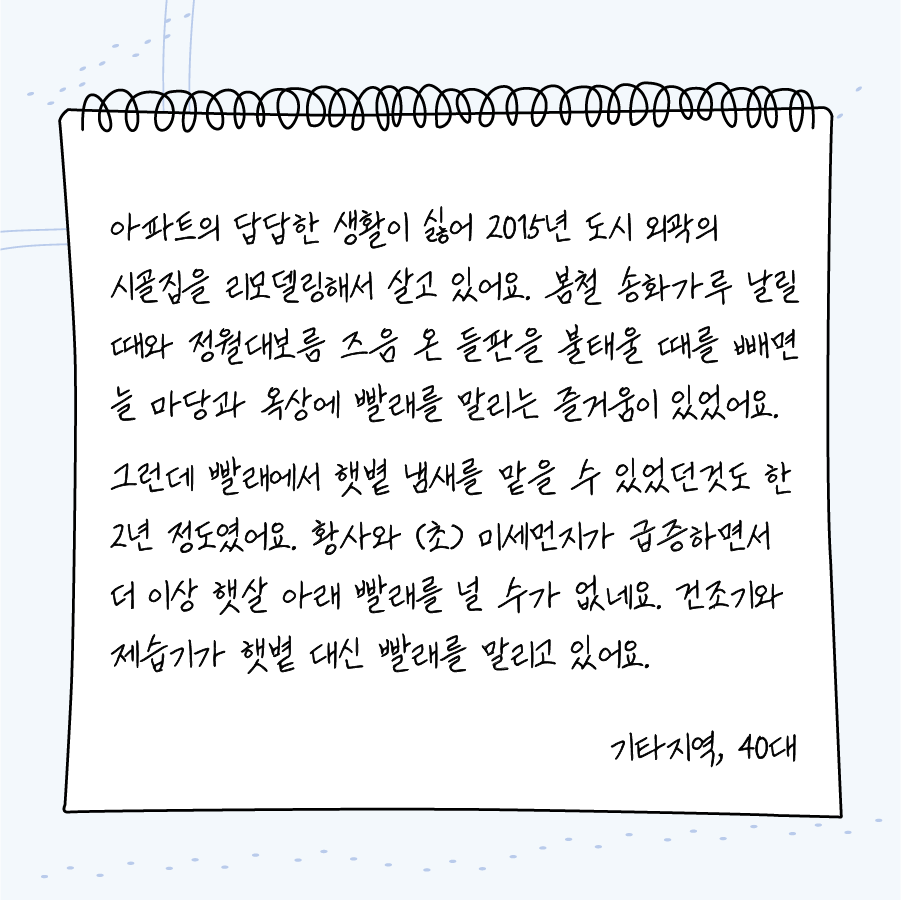 아파트의 답답한 생활이 싫어 2015년 도시 외곽의
시골집을 리모델링해서 살고 있어요. 봄철 송화가루 날릴
때와 정월대보름 즈음 온 들판을 불태울 때를 빼면
늘 마당과 옥상에 빨래를 말리는 즐거움이 있었어요.
그런데 빨래에서 햇볕 냄새를 맡을 수 있었던것도 한
2년 정도였어요. 황사와 (초) 미세먼지가 급증하면서
더 이상 햇살 아래 빨래를 널 수가 없네요. 건조기와
제습기가 햇볕 대신 빨래를 말리고 있어요.
기타지역, 40대